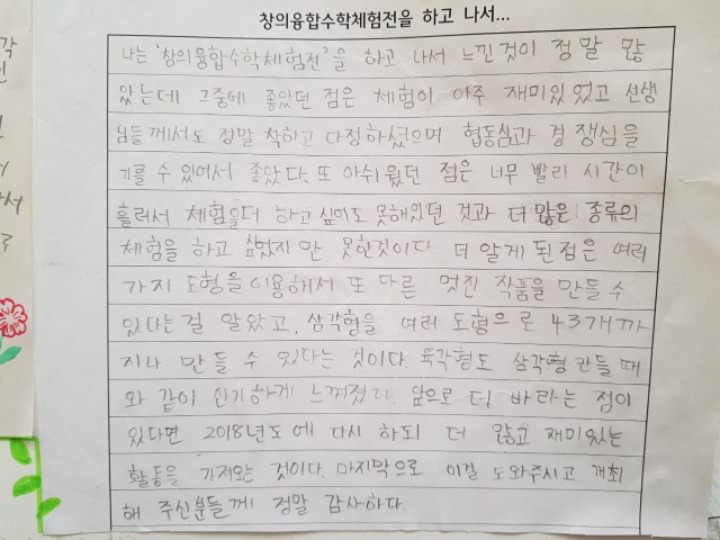 창의융합수학체험전을 하고 나서...
나는 '창의융합수학체험전'을 하고 나서 느낀것이 정말 많
았는데 그중에 좋았던 점은 체험이 아주 재미있었고 선생
님들께서도 정말 착하고 다정하셨으며 협동심과 경쟁심을
기를 수 있어서 좋았다. 또 아쉬웠던 점은 너무 빨리 시간이
흘러서 체험을더 하고싶어도 못해였던 것과 더 많은 종류의
체험을 하고 싶었지만 못한것이다. 더 알게 된점은 여러
가지 도형을이용해서 또 다른 멋진 작품을 만들 수
있다는걸 알았고, 삼각형을 여러 도형으로 43개까
지나 만들 수 있다는 것이다. 육각형도 삼각형 만들 때
와 같이 신기하게 느껴졌다. 앞으로 더 바라는 점이
있다면 2018년도에 다시 하되 더 많고 재미있는
활동을 가져오는 것이다. 마지막으로 이걸 도와주시고 개최
해 주신분들께 정말 감사하다.
각
서
로